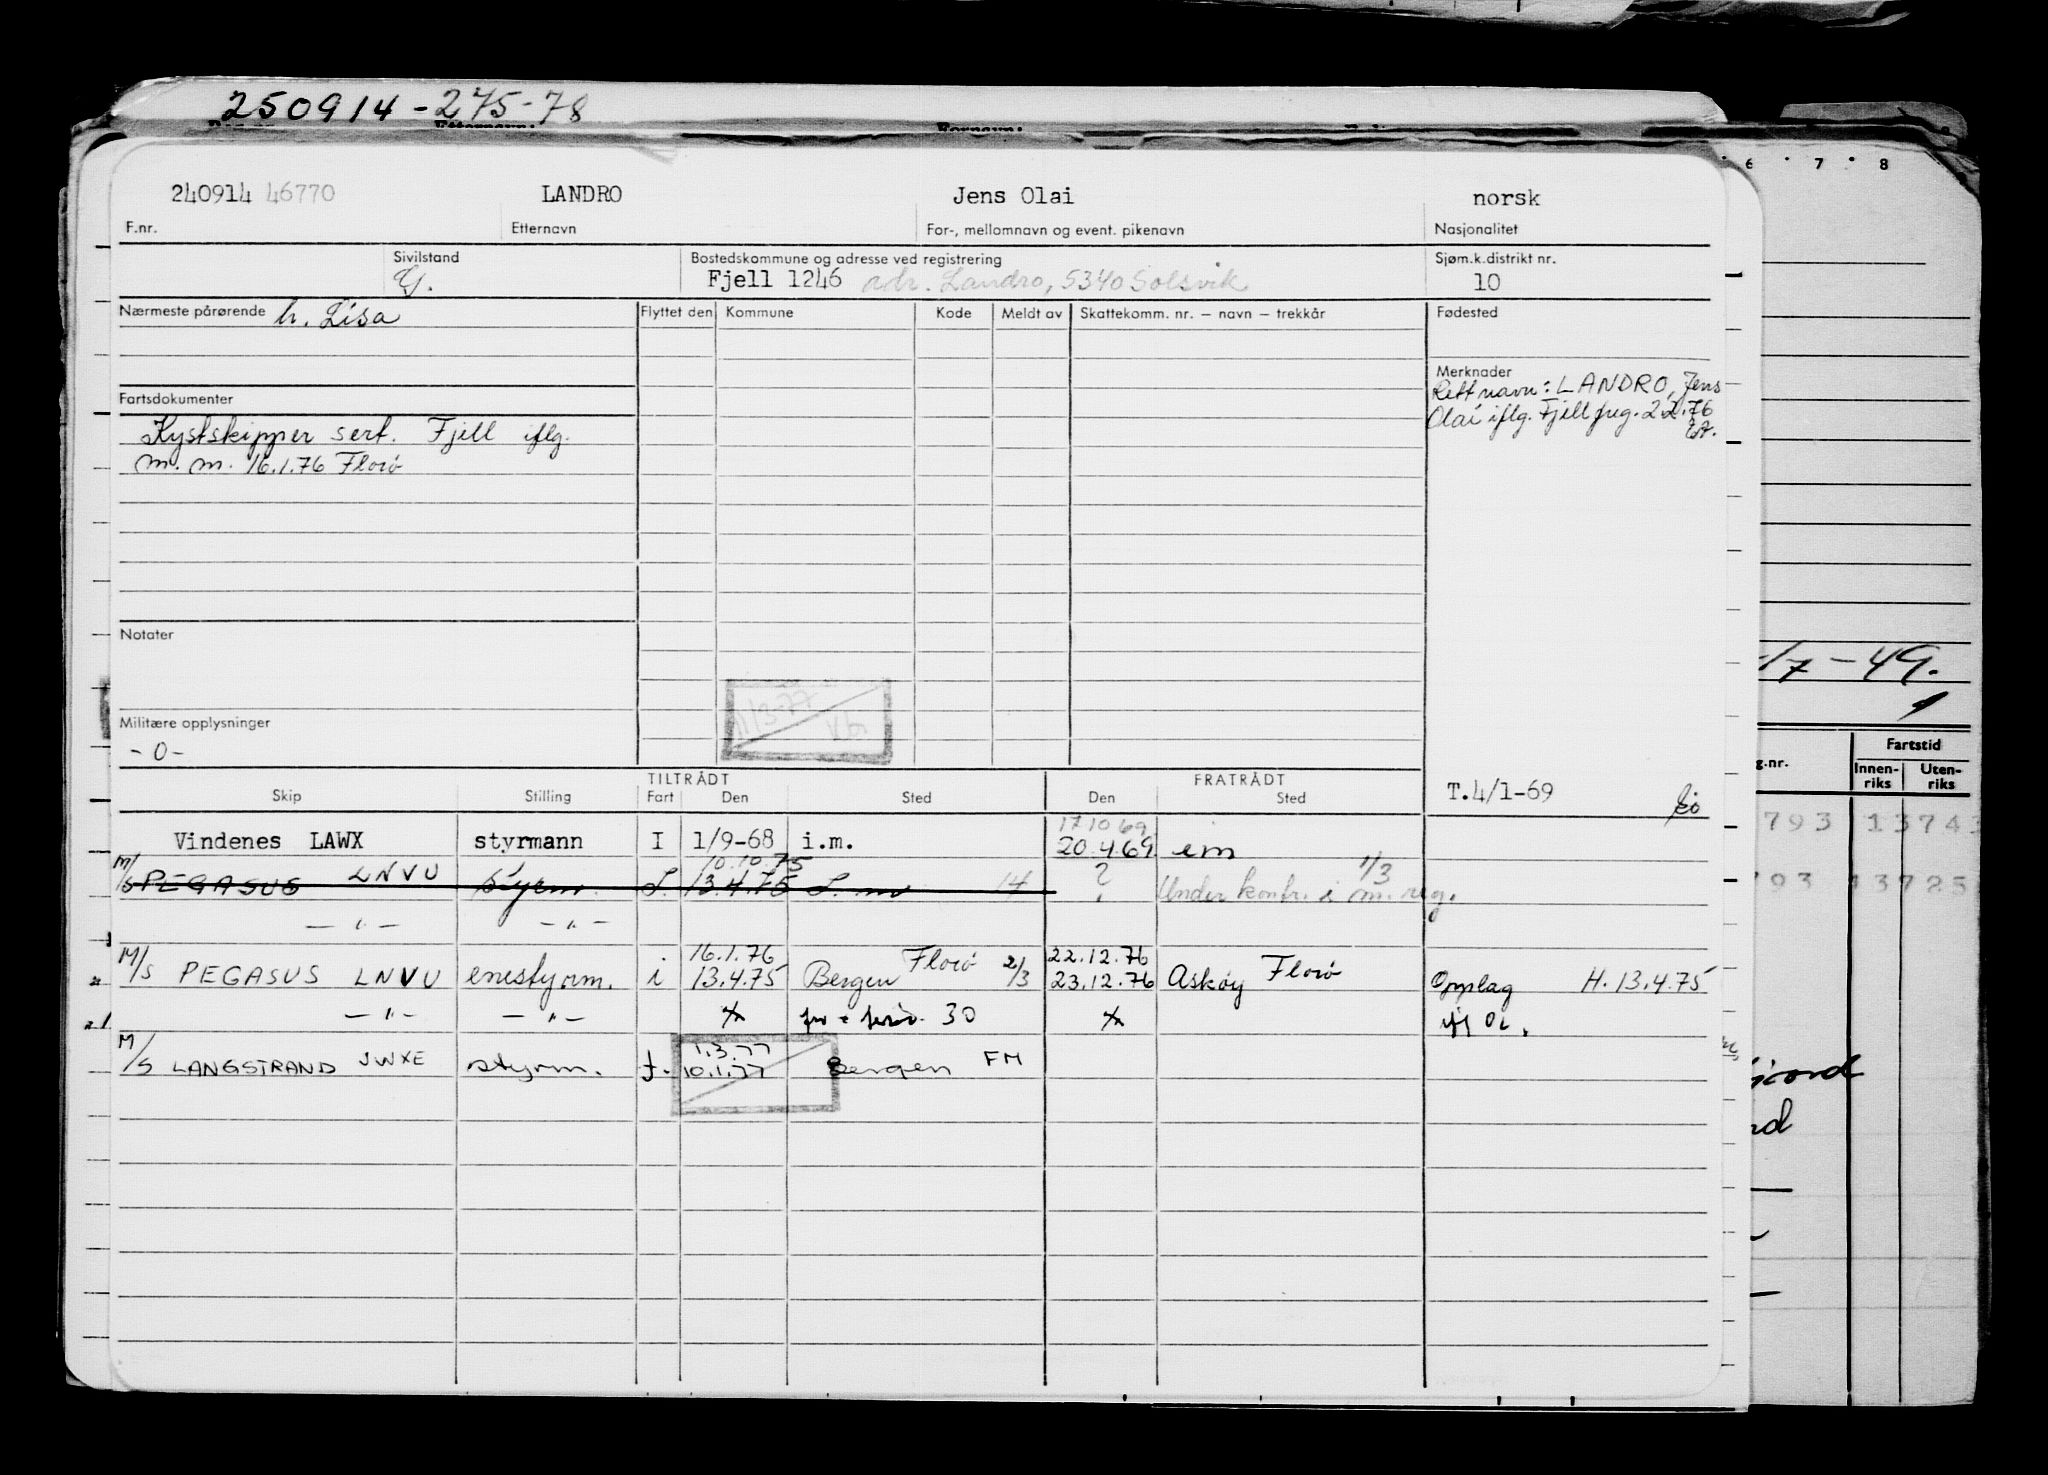 250914-275-78
6 7 8
240914 46770 LANDRO Jens Olai norsk
F.nr. Etternavn For-, mellomnavn og event. pikenavn Nasjonalitet
Sivilstand Bostedskommune og adresse ved registrering Sjøm.k.distrikt nr.
G. Fjell 1246 adr. Landro, 5340 Solsvik 10
Nærmeste pårørende h. Lisa Flyttet den Kommune Kode Meldt av Skattekomm. nr. — navn — trekkår Fødested
Merknader
Rett navn: LANDRO, Jens
Olai iflg. Fjell freg. 2.2.76
Fartsdokumenter
Kystskipper sert. Fjell iflg.
m.m. 16.1.76 Florø
Notater
/7-49.
1/3-77
Militære opplysninger
-0-
TILTRÅDT FRATRÅDT
Skip Stilling Fart Den Sted Den Sted T.4/1-69
g.nr. Fartstid
Innen-riks Uten-riks
17.10.69
Vindenes LAWX styrmann I 1/9-68 i.m. 20.4.69 im
793 13743
10.10.75 1/3
M/S PEGASUS LNVU styrm. 13.4.75 14 ? Under kontr. i m. reg.
793 13725
— " — — " —
16.1.76 Florø 22.12.76
M/S PEGASUS LNVU enestyrm. i 13.4.75 Bergen 2/3 23.12.76 Askøy Florø Opplag H. 13.4.75
— " — — " — 30
1.3.77
M/S LANGSTRAND JWXE styrm. 10.1.77 Bergen FM